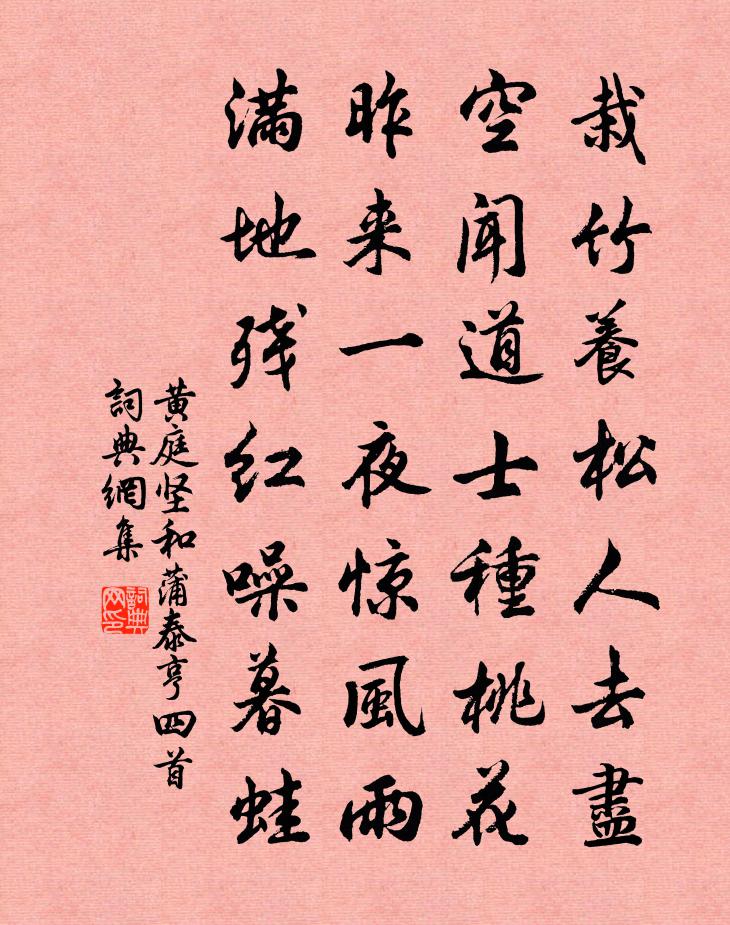 栽竹養松人去盡
空聞道士種桃花
昨来一夜惊風雨
滿地残红噪暮蛙
黄庭坚和蒲泰亨四首
詞典網集
詞典网印